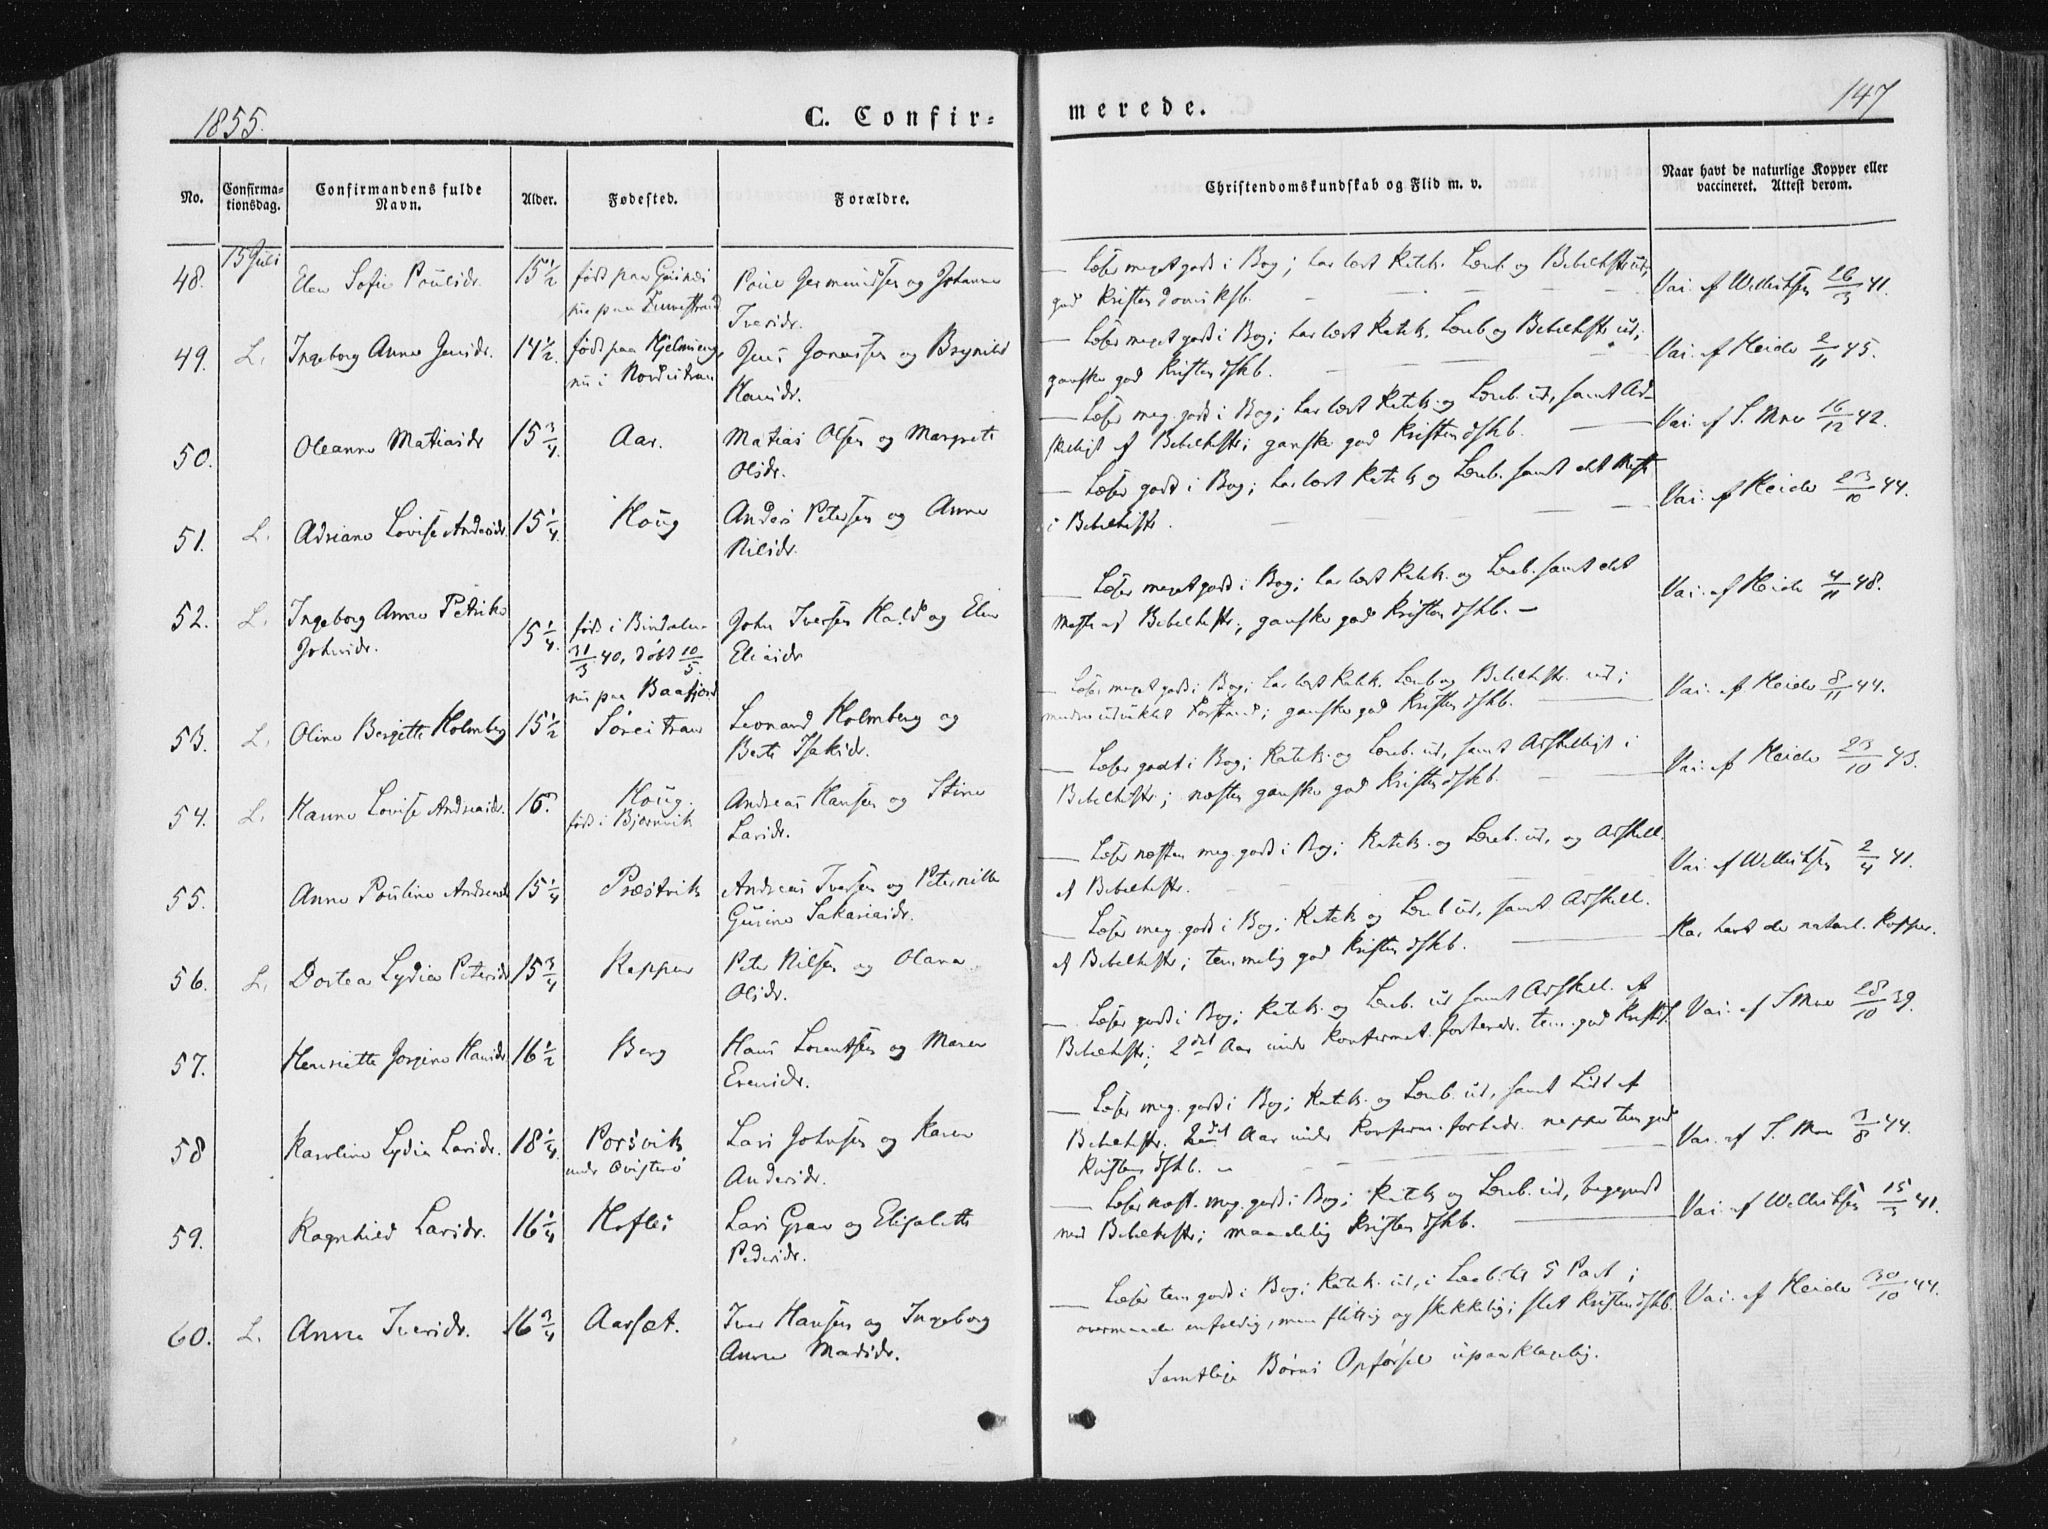 1855.
C. Confir=
merede.
147
No.
Confirma-
tionsdag.
Confirmandens fulde
Navn.
Alder.
Fødested.
Forældre.
Christendomskundskab og Flid m. v.
Naar havt de naturlige Kopper eller
vaccineret. Attest derom.
15 Juli
48. Elen Sofie Poulsdr. 15 1/2 født paa
nu paa
Poul og Johanne
Iversdr.
— Læser meget godt i Bog; har lært Katek. Loub. og Bibelhistr. ud;
god Kristendomskb.
Vai. af Wellertsen 26/3 41.
49. L. Ingeborg Anna Jensdr. 14 1/2. født paa
nu i
Jens Jonassen og Brynild
Hansdr.
— Læser meget godt i Bog; har lært Katek. Loub og Bibelhistr ud;
ganske god Kristendskb.
Vai. af Heide 2/11 45.
50. Oleanna Matiasdr 15 3/4. Aar.
Matias Olsen og Margrete
Olsdr.
— Læser meg. godt i Bog; har lært Katek. og Loub. ud, samt Ad-
skeligt af Bibelhistr; ganske god Kristendskb.
Vai. af S. Moe 16/12 42.
51. L. Adriane Lovise Andersdr. 15 1/4. Houg
Anders Petersen og Anna
Nilsdr.
— Læser godt i Bog; har lært Katek og Loub. samt det Meste
i Bibelhistr.
Vai. af Heide 23/10 44.
52. L. Ingeborg Anna Petrike
Johnsdr. 15 1/4. født i Bindalen
31/3 40, døbt 10/5.
nu paa Baafjord
John Iversen Hald og Elen
Eliasdr
— Læser meget godt i Bog; har lært Katek. og Loub. samt det
meste af Bibelhistr.; ganske god Kristendskb. —
Vai. af Heide 4/11 48.
53. L. Oline Bergitte Holmberg 15 1/2
Leonard Holmberg og
Berte Isaksdr.
— Læser meget godt i Bog; har lært Katek. Loub og Bibelhistr. ud;
mindre udviklet Forstand; ganske god Kristendskb.
Vai. af Heide 8/11 44.
54. L. Hanna Lovise Andreasdr. 16. Houg.
født i Bjørnvik
Andreas Hansen og Stine
Larsdr.
— Læser godt i Bog; Katek. og Loub. ud, samt Adskelligt i
Bibelhistr.; næsten ganske god Kristendskb.
Vai. af Heide 23/10 43.
55. Anna Pouline Andreasdr 15 1/4 Præstvik
Andreas Iversen og Peternille
Gurine Sakariasdr.
— Læser næsten meg. godt i Bog; Katek. og Loub. ud, og Adskell.
af Bibelhistr.
Vai. af Wellertsen 2/4 41.
56. L. Dortea Lydia Petersdr 15 3/4
Peter Nilsen og Olana
Olsdr.
— Læser meg. godt i Bog; Katek og Loub ud, samt Adskell.
af Bibelhistr; temmelig god Kristendskb.
Har havt de naturl. Kopper.
57. Henriette Jørgine Hansdr 16 1/2 Berg
Hans Lorentsen og Maren
Evensdr.
— Læser godt i Bog; Katek. og Loub. ud samt Adskell. af
Bibelhistr; 2det Aar under Konfirmat. forberedr. tem. god Kristd.
Vai. af S Moe 28/10 39.
58 Karoline Lydia Larsdr. 18 1/4. Porsvik
under
Lars Johnsen og Karen
Andersdr.
— Læser meg. godt i Bog; Katek. og Loub. ud, samt Lidt af
Bibelhistr. 2det Aar under Konfirm. forberedr. neppe tem god
Kristendskb.
Vai. af S. Moe 3/8 44.
59. Ragnhild Larsdr. 16 1/4 Hofles
Lars Grav og Elisabeth
Pedersdr.
— Læser næst. meg. godt i Bog; Katek og Loub. ud, begyndt
med Bibelhistr; maadelig Kristendskb.
Vai. af Wellertsen 15/3 41.
60. L. Anna Iversdr. 16 3/4 Aarsæt.
Iver Hansen og Ingeborg
Anna Madsdr.
— Læser tem godt i Bog; Katek. ud, i Loub. til 5 Part;
overmaade enfoldig, men flittig og skikkelig; slet Kristendskb.
Vai. af Heide 30/10 44.
Samtlige Børns Opførsel upaaklagelig.